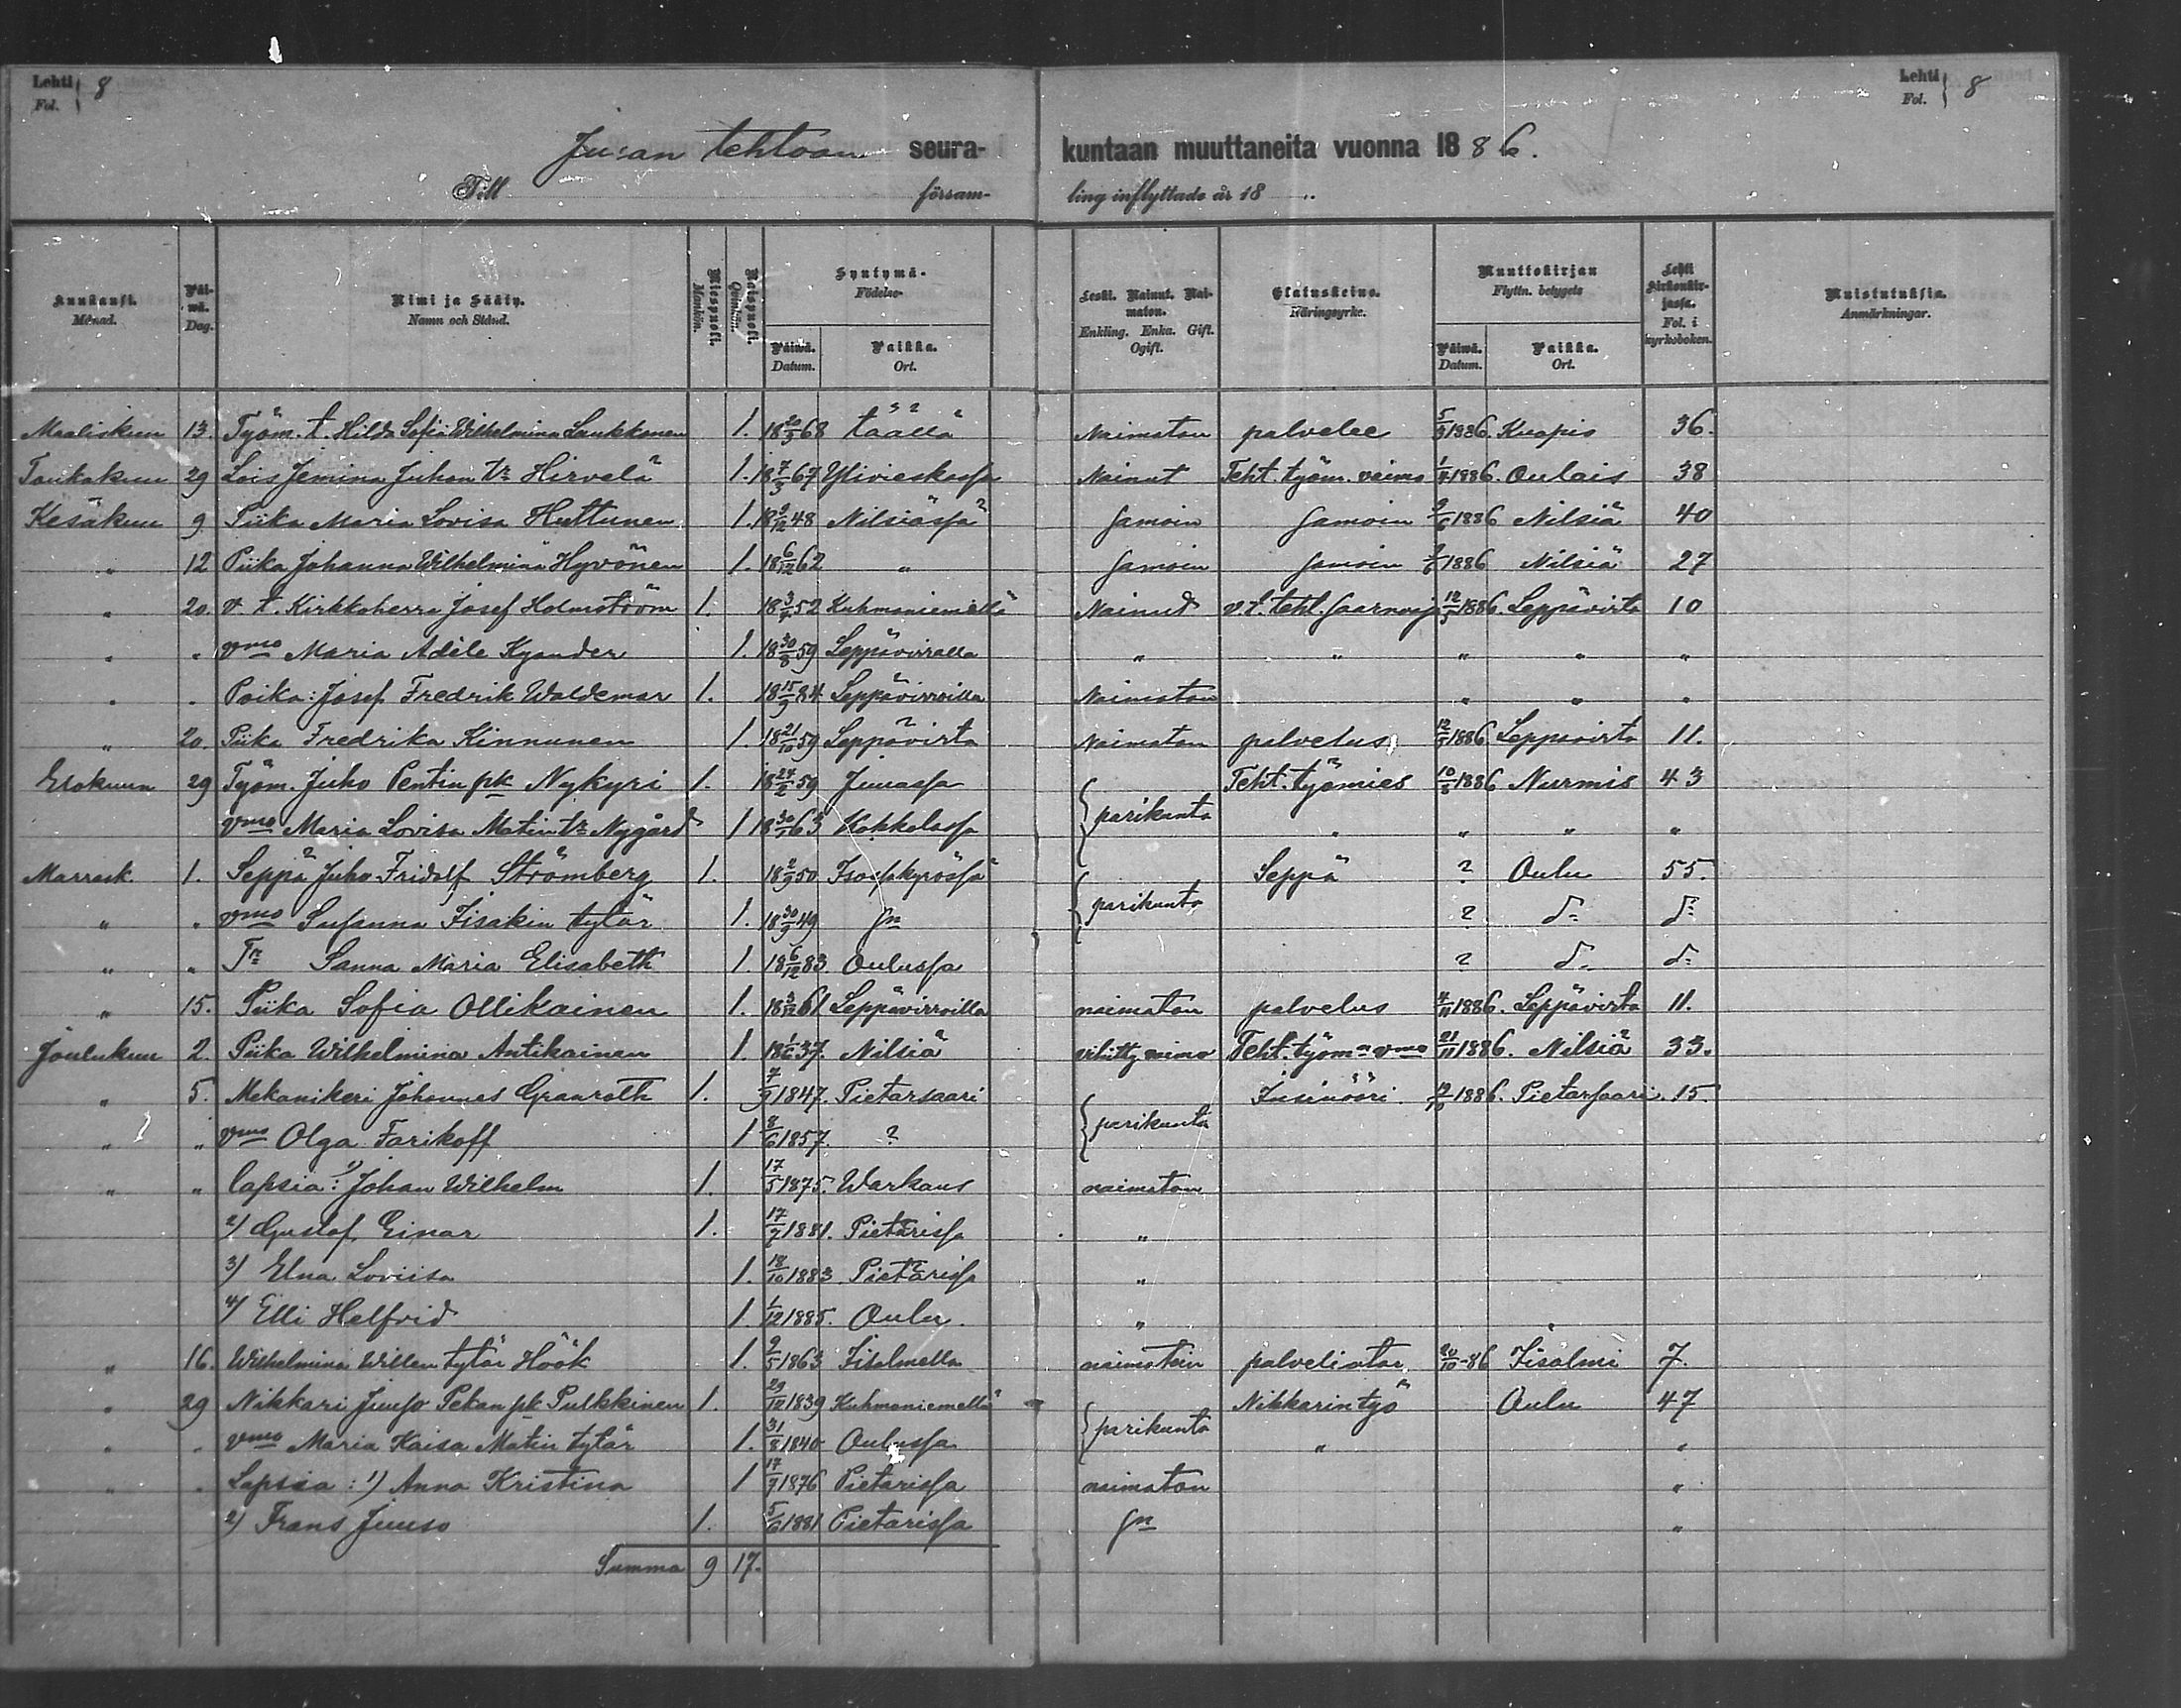 Lehti Fol. 8
Lehti Fol. 8
Juvan tehtaan seurakuntaan muuttaneita vuonna 1886.
Till församling inflyttade år 18
Kuukausi. Månad. Päivä. Dag. Nimi ja Sääty. Namn och Stånd. Miespuoli. Mankön. Naispuoli. Qvinkön. Syntymä- Födelse- Päivä. Datum. Paikka. Ort. Leski. Nainut. Naimaton. Enkling. Enka. Gift. Ogift. Elatuskeino. Näringsyrke. Muuttokirjan Flyttn. betygets Päivä. Datum. Paikka. Ort. Lehti kirkonkirjassa. Fol. i kyrkoboken. Muistutuksia. Anmärkningar.
Maaliskuu 13. Työm. t. Hilda Sofia Wilhelmina Laukkanen 1. 18 20/3 68 täällä Naimaton palvelee 5/3 1886. Kuopio 36.
Toukokuu 29 Lois Jemina Juhon tr Hirvelä 1. 18 7/3 67 Ylivieskassa Nainut Teht. työm. vaimo 1886. Oulais 38
Kesäkuu 9. Piika Maria Lovisa Huttunen 1. 48 Nilsiässä Samoin Samoin 1886 Nilsiä 40
" 12 Piika Johanna Wilhelmina Hyvönen 1. 18 6/12 62 " Samoin Samoin 1886 Nilsiä 27
" 20. v. t. Kirkkoherra Josef Holmström 1. 52 Kuhmoniemellä Nainut v.t. teht. saarnaaja 1886. Leppävirta 10
" " vmo Maria Adéle Kyander 1. 18 30/8 59 Leppävirralla " " " " "
" " Poika: Josef Fredrik Waldemar 1. 18 15/9 84 Leppävirroilla Naimaton " " "
" 20. Piika Fredrika Kinnunen 1. 18 21/10 59 Leppävirta Naimaton palvelus 1886. Leppävirta 11.
Elokuun 29 Työm. Juho Pentin pk Nykyri 1. 18 24/2 59 Juuassa { parikunta Teht. työmies 1886 Nurmis 43
vmo Maria Lovisa Matin tr Nygård 1 63 Kokkolassa " " " "
Marrask. 1. Seppä Juho Fridolf Strömberg 1. 50 Isossakyrössä { parikunta Seppä ? Oulu 55.
" " vmo Susanna Iisakin tytär 1. 18 30/9 49 Sn ? d:o d:o
" " Tr Sanna Maria Elisabeth 1. 18 6/12 83. Oulussa ? d:o d:o
" 15. Piika Sofia Ollikainen 1. 61 Leppävirroilla naimaton palvelus 4/11 1886. Leppävirta 11.
Joulukuu 2. Piika Wilhelmina Antikainen 1. 37. Nilsiä vihitty vaimo Teht. työmn vmo 21/11 1886. Nilsiä 33.
" 5. Mekanikeri Johannes Granroth 1. 7/9 1847. Pietarsaari { parikunta Insinööri 1886. Pietarsaari. 15.
" " vmo Olga Farikoff 1 8/6 1857. ?
" " Lapsia: 1) Johan Wilhelm 1. 17/5 1875. Warkaus naimaton
2) Gustaf Einar 1. 17/7 1881. Pietarissa "
3) Elna Loviisa 1. 18/10 1883. Pietarissa "
4) Elli Helfrid 1 1/12 1885. Oulu. "
" 16. Wilhelmina Willen tytär Höök 1. 9/5 1863 Iisalmella naimaton palveliatar 20/10 -86 Iisalmi 7.
" 29 Nikkari Juuso Pekan pk Pulkkinen 1. 29/12 1839 Kuhmoniemellä { parikunta Nikkarintyö Oulu 47
" " vmo Maria Kaisa Matin tytär 1. 31/8 1840 Oulussa " "
" " Lapsia: 1) Anna Kristina 1 17/7 1876 Pietarissa naimaton "
2) Frans Juuso 1. 5/6 1881 Pietarissa Sn "
Summa 9 17.